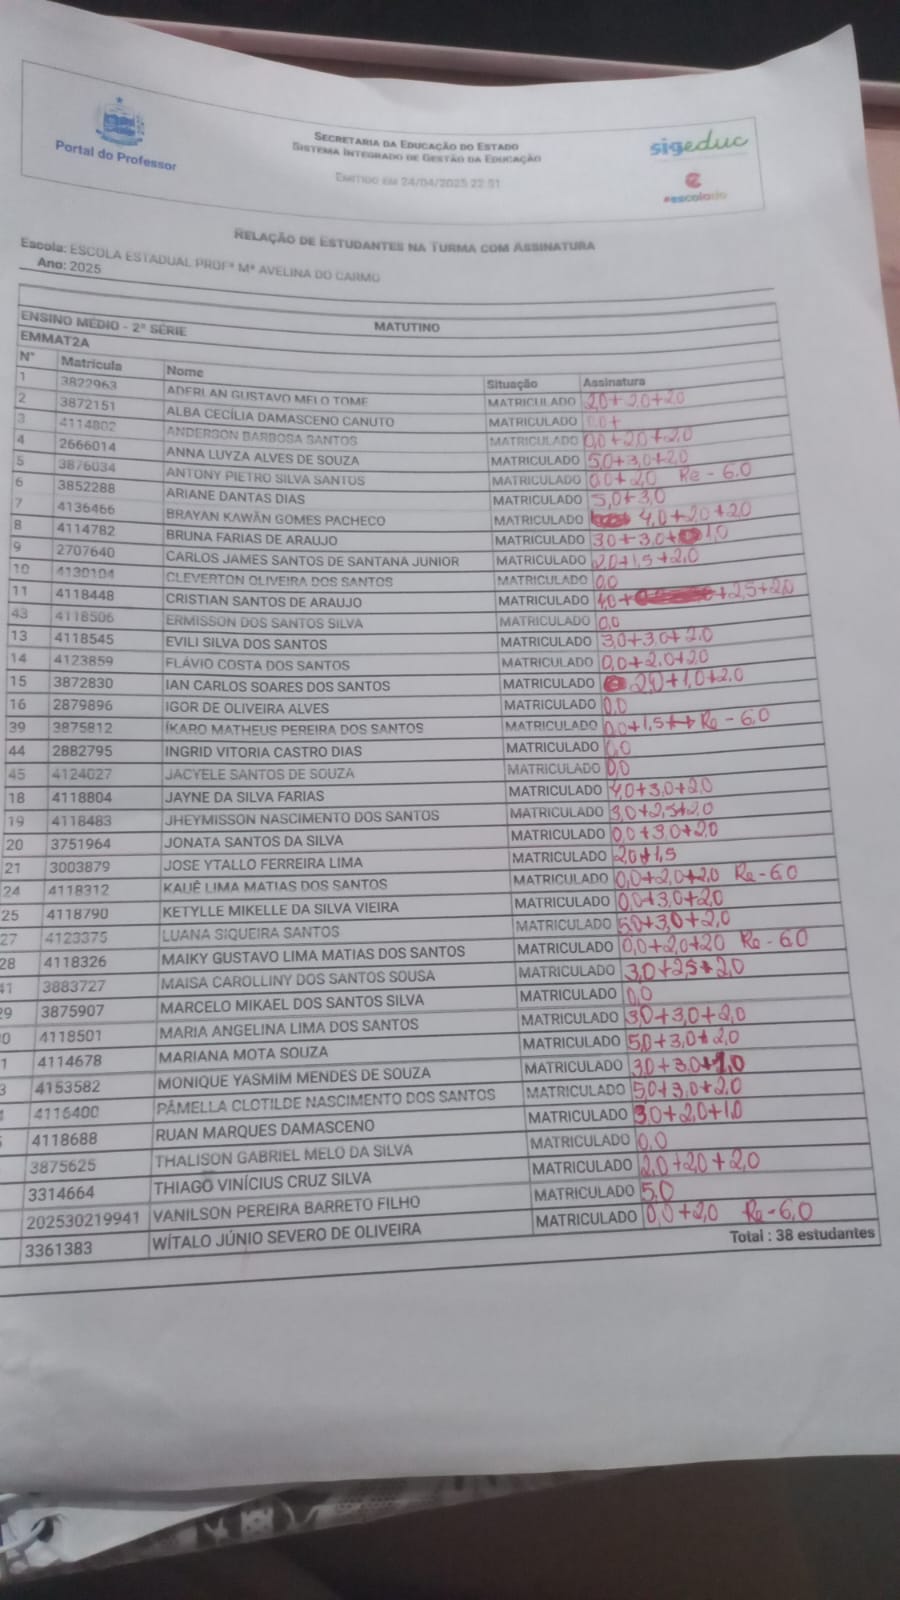 Portal do Professor
SECRETARIA DA EDUCAÇÃO DO ESTADO
SISTEMA INTEGRADO DE GESTÃO DA EDUCAÇÃO
EMITIDO EM 24/04/2025 22:51
sigeduc
#escolado
RELAÇÃO DE ESTUDANTES NA TURMA COM ASSINATURA
Escola: ESCOLA ESTADUAL PROFª Mª AVELINA DO CARMO
Ano: 2025
ENSINO MÉDIO - 2ª SÉRIE MATUTINO
EMMAT2A
N° Matrícula Nome Situação Assinatura
1 3822963 ADERLAN GUSTAVO MELO TOME MATRICULADO 2,0+2,0+2,0
2 3872151 ALBA CECÍLIA DAMASCENO CANUTO MATRICULADO 0,0+
3 4114802 ANDERSON BARBOSA SANTOS MATRICULADO 0,0+2,0+2,0
4 2666014 ANNA LUYZA ALVES DE SOUZA MATRICULADO 5,0+3,0+2,0
5 3876034 ANTONY PIETRO SILVA SANTOS MATRICULADO 0,0+2,0 Re - 6.0
6 3852288 ARIANE DANTAS DIAS MATRICULADO 5,0+3,0
7 4136466 BRAYAN KAWÃN GOMES PACHECO MATRICULADO 4,0+2,0+2,0
8 4114782 BRUNA FARIAS DE ARAUJO MATRICULADO 3,0+3,0+1,0
9 2707640 CARLOS JAMES SANTOS DE SANTANA JUNIOR MATRICULADO 2,0+1,5+2,0
10 4130104 CLEVERTON OLIVEIRA DOS SANTOS MATRICULADO 0,0
11 4118448 CRISTIAN SANTOS DE ARAUJO MATRICULADO 4,0+ +2,5+2,0
43 4118506 ERMISSON DOS SANTOS SILVA MATRICULADO 0,0
13 4118545 EVILI SILVA DOS SANTOS MATRICULADO 3,0+3,0+2,0
14 4123859 FLÁVIO COSTA DOS SANTOS MATRICULADO 0,0+2,0+2,0
15 3872830 IAN CARLOS SOARES DOS SANTOS MATRICULADO 2,0+1,0+2,0
16 2879896 IGOR DE OLIVEIRA ALVES MATRICULADO 0,0
39 3875812 ÍKARO MATHEUS PEREIRA DOS SANTOS MATRICULADO 0,0+1,5+→ Re - 6,0
44 2882795 INGRID VITORIA CASTRO DIAS MATRICULADO 0,0
45 4124027 JACYELE SANTOS DE SOUZA MATRICULADO 0,0
18 4118804 JAYNE DA SILVA FARIAS MATRICULADO 4,0+3,0+2,0
19 4118483 JHEYMISSON NASCIMENTO DOS SANTOS MATRICULADO 3,0+2,5+2,0
20 3751964 JONATA SANTOS DA SILVA MATRICULADO 0,0+3,0+2,0
21 3003879 JOSE YTALLO FERREIRA LIMA MATRICULADO 2,0+1,5
24 4118312 KAUÊ LIMA MATIAS DOS SANTOS MATRICULADO 0,0+2,0+2,0 Re - 6.0
25 4118790 KETYLLE MIKELLE DA SILVA VIEIRA MATRICULADO 0,0+3,0+2,0
27 4123375 LUANA SIQUEIRA SANTOS MATRICULADO 5,0+3,0+2,0
28 4118326 MAIKY GUSTAVO LIMA MATIAS DOS SANTOS MATRICULADO 0,0+2,0+2,0 Re - 6.0
41 3883727 MAISA CAROLLINY DOS SANTOS SOUSA MATRICULADO 3,0+2,5+2,0
29 3875907 MARCELO MIKAEL DOS SANTOS SILVA MATRICULADO 0,0
0 4118501 MARIA ANGELINA LIMA DOS SANTOS MATRICULADO 3,0+3,0+2,0
1 4114678 MARIANA MOTA SOUZA MATRICULADO 5,0+3,0+2,0
3 4153582 MONIQUE YASMIM MENDES DE SOUZA MATRICULADO 3,0+3,0+1,0
4116400 PÂMELLA CLOTILDE NASCIMENTO DOS SANTOS MATRICULADO 5,0+3,0+2,0
4118688 RUAN MARQUES DAMASCENO MATRICULADO 3,0+2,0+1,0
3875625 THALISON GABRIEL MELO DA SILVA MATRICULADO 0,0
3314664 THIAGO VINÍCIUS CRUZ SILVA MATRICULADO 2,0+2,0+2,0
202530219941 VANILSON PEREIRA BARRETO FILHO MATRICULADO 5,0
3361383 WÍTALO JÚNIO SEVERO DE OLIVEIRA MATRICULADO 0,0+2,0 Re - 6,0
Total : 38 estudantes